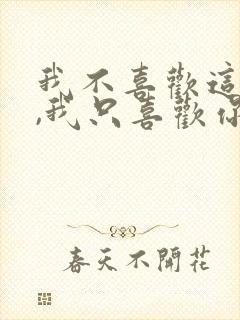 我不喜歡這
,我只喜歡你
春天不開花